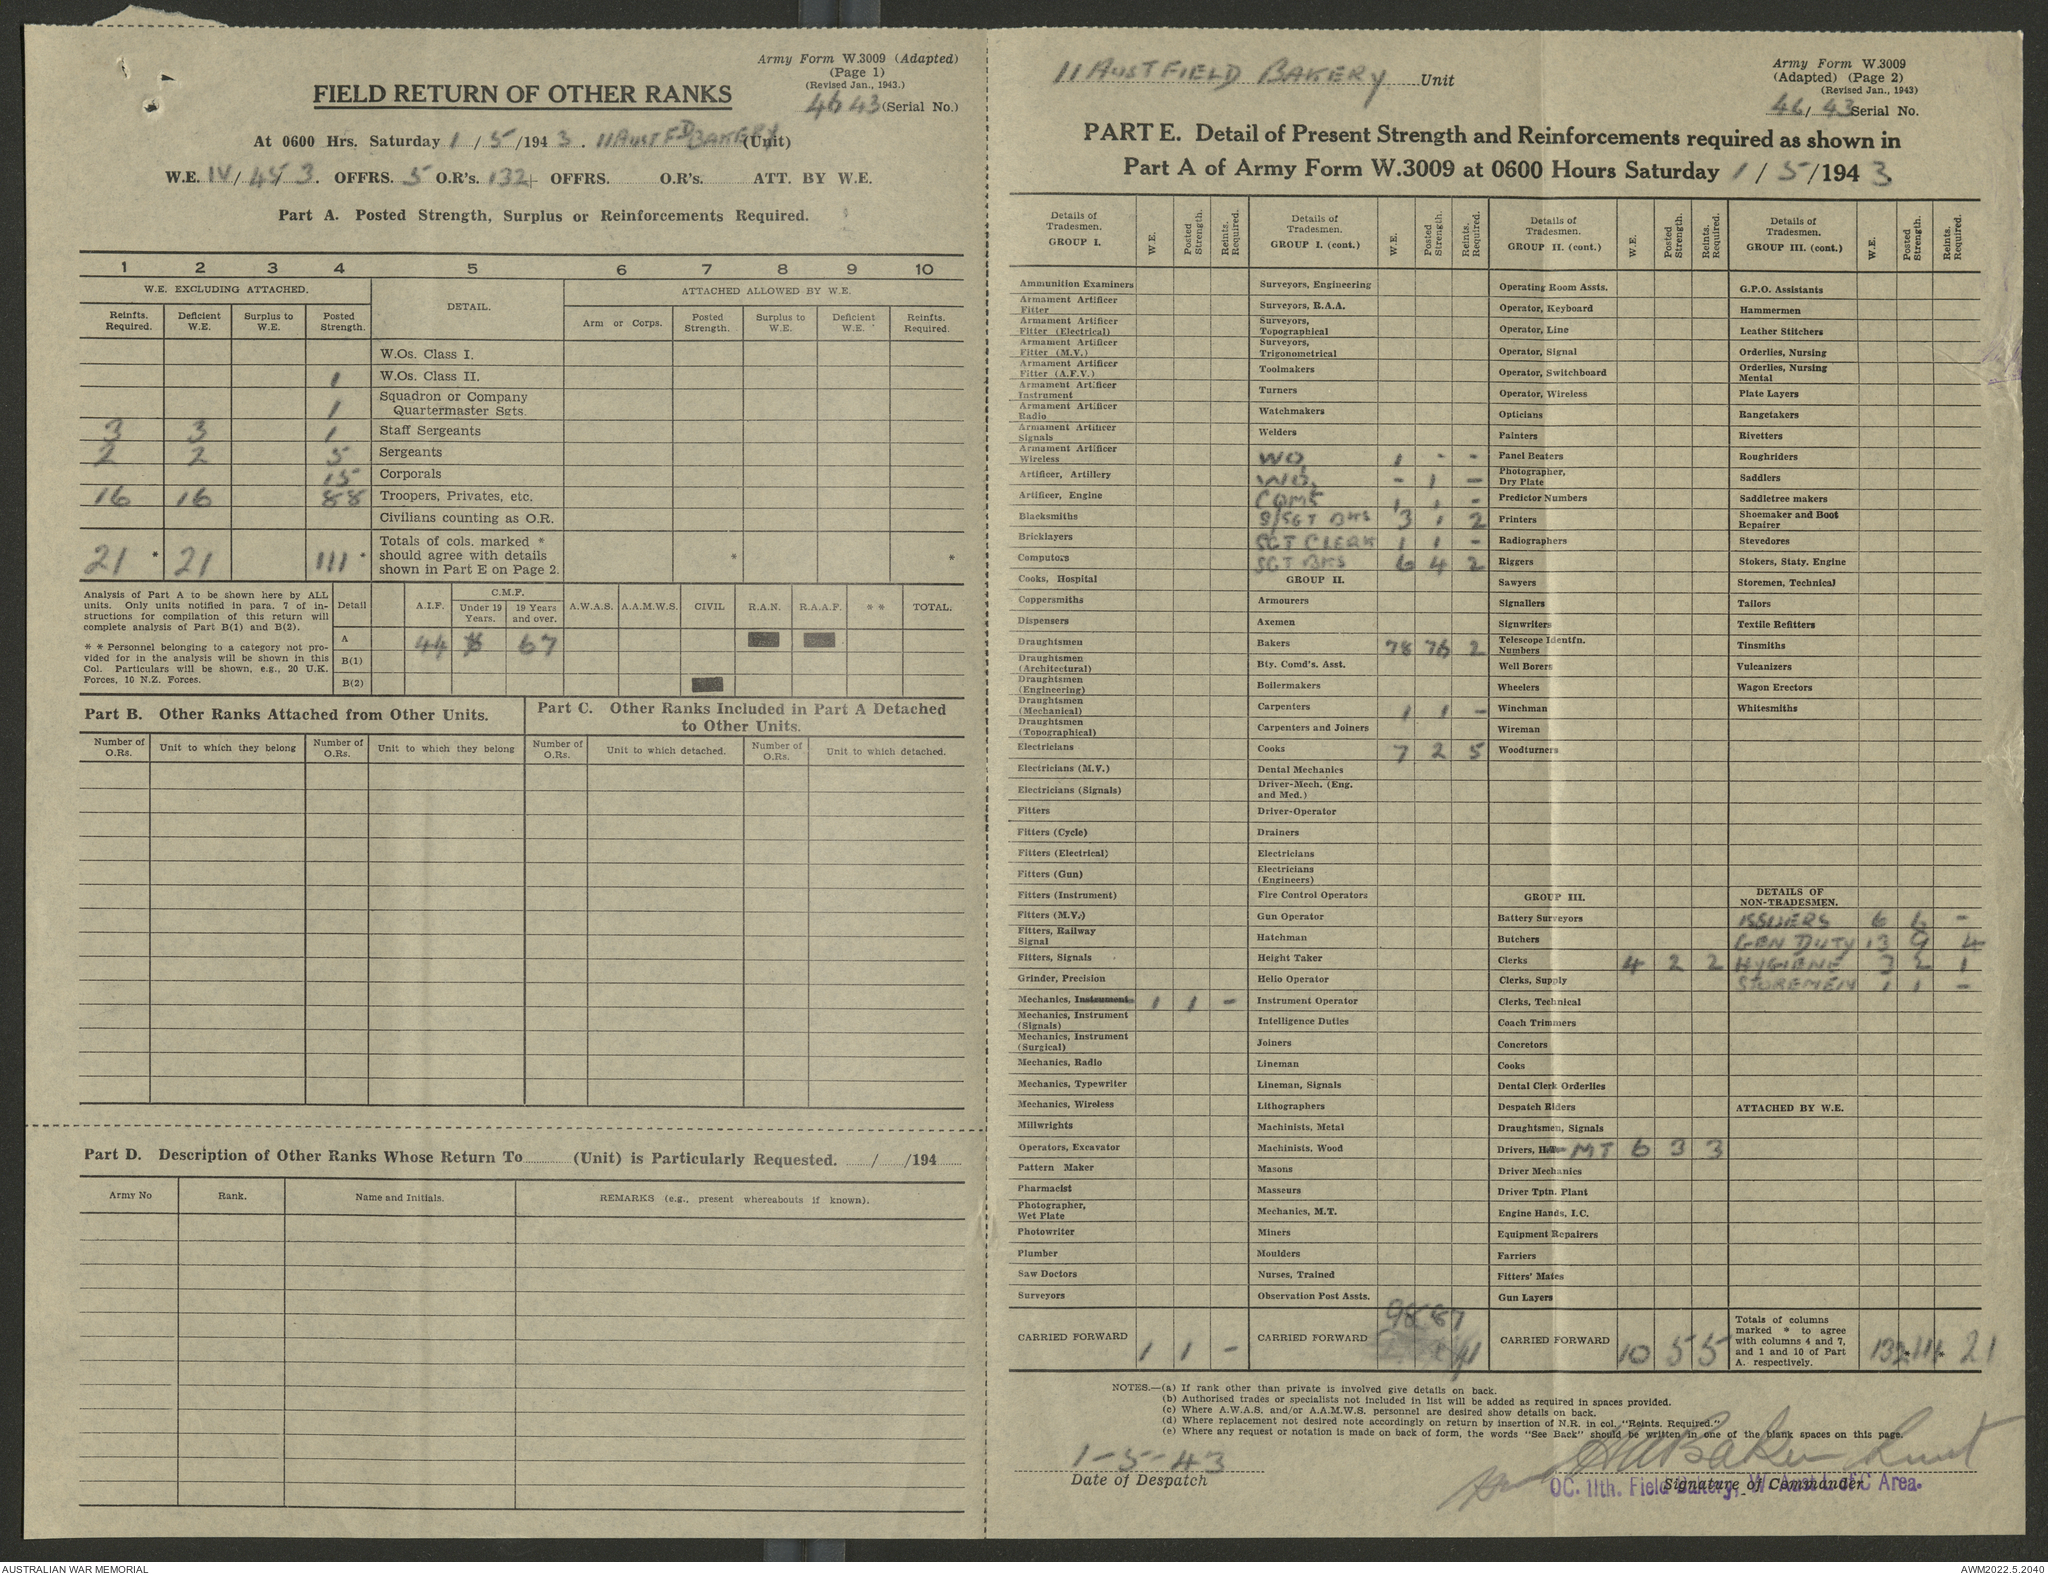 Army Form W.3009 (Adapted)
(Page 1)
(Revised Jan., 1943.)
FIELD RETURN OF OTHER RANKS
46 43 (Serial No.)
At 0600 Hrs. Saturday 1 / 5 /194 3. 11 AUST FD BAKERY (Unit)
W.E. IV/ 45/ 3. OFFRS. 5 O.R's. 132 OFFRS. O.R's. ATT. BY W.E.
Part A. Posted Strength, Surplus or Reinforcements Required.
1 2 3 4 5 6 7 8 9 10
W.E. EXCLUDING ATTACHED. DETAIL. ATTACHED ALLOWED BY W.E.
Reinfts. Required. Deficient W.E. Surplus to W.E. Posted Strength. Arm or Corps. Posted Strength. Surplus to W.E. Deficient W.E. Reinfts. Required.
W.Os. Class I.
1 W.Os. Class II.
1 Squadron or Company Quartermaster Sgts.
3 3 1 Staff Sergeants
2 2 5 Sergeants
15 Corporals
16 16 88 Troopers, Privates, etc.
Civilians counting as O.R.
21 * 21 111 * Totals of cols. marked * should agree with details shown in Part E on Page 2. * *
Analysis of Part A to be shown here by ALL
units. Only units notified in para. 7 of in-
structions for compilation of this return will
complete analysis of Part B(1) and B(2).
* * Personnel belonging to a category not pro-
vided for in the analysis will be shown in this
Col. Particulars will be shown, e.g., 20 U.K.
Forces, 10 N.Z. Forces.
Detail A.I.F. C.M.F. Under 19 Years. 19 Years and over. A.W.A.S. A.A.M.W.S. CIVIL R.A.N. R.A.A.F. * * TOTAL.
A 44 67
B(1)
B(2)
Part B. Other Ranks Attached from Other Units.
Part C. Other Ranks Included in Part A Detached
to Other Units.
Number of O.Rs. Unit to which they belong Number of O.Rs. Unit to which they belong Number of O.Rs. Unit to which detached. Number of O.Rs. Unit to which detached.
Part D. Description of Other Ranks Whose Return To (Unit) is Particularly Requested. / /194
Army No Rank. Name and Initials. REMARKS (e.g., present whereabouts if known).
11 AUST FIELD BAKERY Unit
Army Form W.3009
(Adapted) (Page 2)
(Revised Jan., 1943)
46/ 43 Serial No.
PART E. Detail of Present Strength and Reinforcements required as shown in
Part A of Army Form W.3009 at 0600 Hours Saturday 1 / 5 /194 3
Details of Tradesmen. GROUP I. W.E. Posted Strength. Reints. Required.
Ammunition Examiners
Armament Artificer Fitter
Armament Artificer Fitter (Electrical)
Armament Artificer Fitter (M.V.)
Armament Artificer Fitter (A.F.V.)
Armament Artificer Instrument
Armament Artificer Radio
Armament Artificer Signals
Armament Artificer Wireless
Artificer, Artillery
Artificer, Engine
Blacksmiths
Bricklayers
Computors
Cooks, Hospital
Coppersmiths
Dispensers
Draughtsmen
Draughtsmen (Architectural)
Draughtsmen (Engineering)
Draughtsmen (Mechanical)
Draughtsmen (Topographical)
Electricians
Electricians (M.V.)
Electricians (Signals)
Fitters
Fitters (Cycle)
Fitters (Electrical)
Fitters (Gun)
Fitters (Instrument)
Fitters (M.V.)
Fitters, Railway Signal
Fitters, Signals
Grinder, Precision
Mechanics, Instrument 1 1 -
Mechanics, Instrument (Signals)
Mechanics, Instrument (Surgical)
Mechanics, Radio
Mechanics, Typewriter
Mechanics, Wireless
Millwrights
Operators, Excavator
Pattern Maker
Pharmacist
Photographer, Wet Plate
Photowriter
Plumber
Saw Doctors
Surveyors
CARRIED FORWARD 1 1 -
Details of Tradesmen. GROUP I. (cont.) W.E. Posted Strength. Reints. Required.
Surveyors, Engineering
Surveyors, R.A.A.
Surveyors, Topographical
Surveyors, Trigonometrical
Toolmakers
Turners
Watchmakers
Welders
WO 1 - -
WO. - 1 -
CQMS 1 1 -
S/SGT BKS 3 1 2
SGT CLERK 1 1 -
SGT BKS 6 4 2
GROUP II.
Armourers
Axemen
Bakers 78 76 2
Bty. Comd's. Asst.
Boilermakers
Carpenters 1 1 -
Carpenters and Joiners
Cooks 7 2 5
Dental Mechanics
Driver-Mech. (Eng. and Med.)
Driver-Operator
Drainers
Electricians
Electricians (Engineers)
Fire Control Operators
Gun Operator
Hatchman
Height Taker
Helio Operator
Instrument Operator
Intelligence Duties
Joiners
Lineman
Lineman, Signals
Lithographers
Machinists, Metal
Machinists, Wood
Masons
Masseurs
Mechanics, M.T.
Miners
Moulders
Nurses, Trained
Observation Post Assts.
CARRIED FORWARD 98 87 11
Details of Tradesmen. GROUP II. (cont.) W.E. Posted Strength. Reints. Required.
Operating Room Assts.
Operator, Keyboard
Operator, Line
Operator, Signal
Operator, Switchboard
Operator, Wireless
Opticians
Painters
Panel Beaters
Photographer, Dry Plate
Predictor Numbers
Printers
Radiographers
Riggers
Sawyers
Signallers
Signwriters
Telescope Identfn. Numbers
Well Borers
Wheelers
Winchman
Wireman
Woodturners
GROUP III.
Battery Surveyors
Butchers
Clerks 4 2 2
Clerks, Supply
Clerks, Technical
Coach Trimmers
Concretors
Cooks
Dental Clerk Orderlies
Despatch Riders
Draughtsmen, Signals
Drivers, MT 6 3 3
Driver Mechanics
Driver Tptn. Plant
Engine Hands, I.C.
Equipment Repairers
Farriers
Fitters' Mates
Gun Layers
CARRIED FORWARD 10 5 5
Details of Tradesmen. GROUP III. (cont.) W.E. Posted Strength. Reints. Required.
G.P.O. Assistants
Hammermen
Leather Stitchers
Orderlies, Nursing
Orderlies, Nursing Mental
Plate Layers
Rangetakers
Rivetters
Roughriders
Saddlers
Saddletree makers
Shoemaker and Boot Repairer
Stevedores
Stokers, Staty. Engine
Storemen, Technical
Tailors
Textile Refitters
Tinsmiths
Vulcanizers
Wagon Erectors
Whitesmiths
DETAILS OF NON-TRADESMEN.
ISSUERS 6 6 -
GEN DUTY 13 9 4
HYGIENE 3 2 1
STOREMEN 1 1 -
ATTACHED BY W.E.
Totals of columns marked * to agree with columns 4 and 7, and 1 and 10 of Part A. respectively. 132 * 111 * 21
NOTES.—(a) If rank other than private is involved give details on back.
(b) Authorised trades or specialists not included in list will be added as required in spaces provided.
(c) Where A.W.A.S. and/or A.A.M.W.S. personnel are desired show details on back.
(d) Where replacement not desired note accordingly on return by insertion of N.R. in col. "Reints. Required."
(e) Where any request or notation is made on back of form, the words "See Back" should be written in one of the blank spaces on this page.
1-5-43
Date of Despatch
Baker Lieut
Signature of Commander
OC. 11th. Field Bakery, W. Aust L of C Area.
AUSTRALIAN WAR MEMORIAL
AWM2022.5.2040